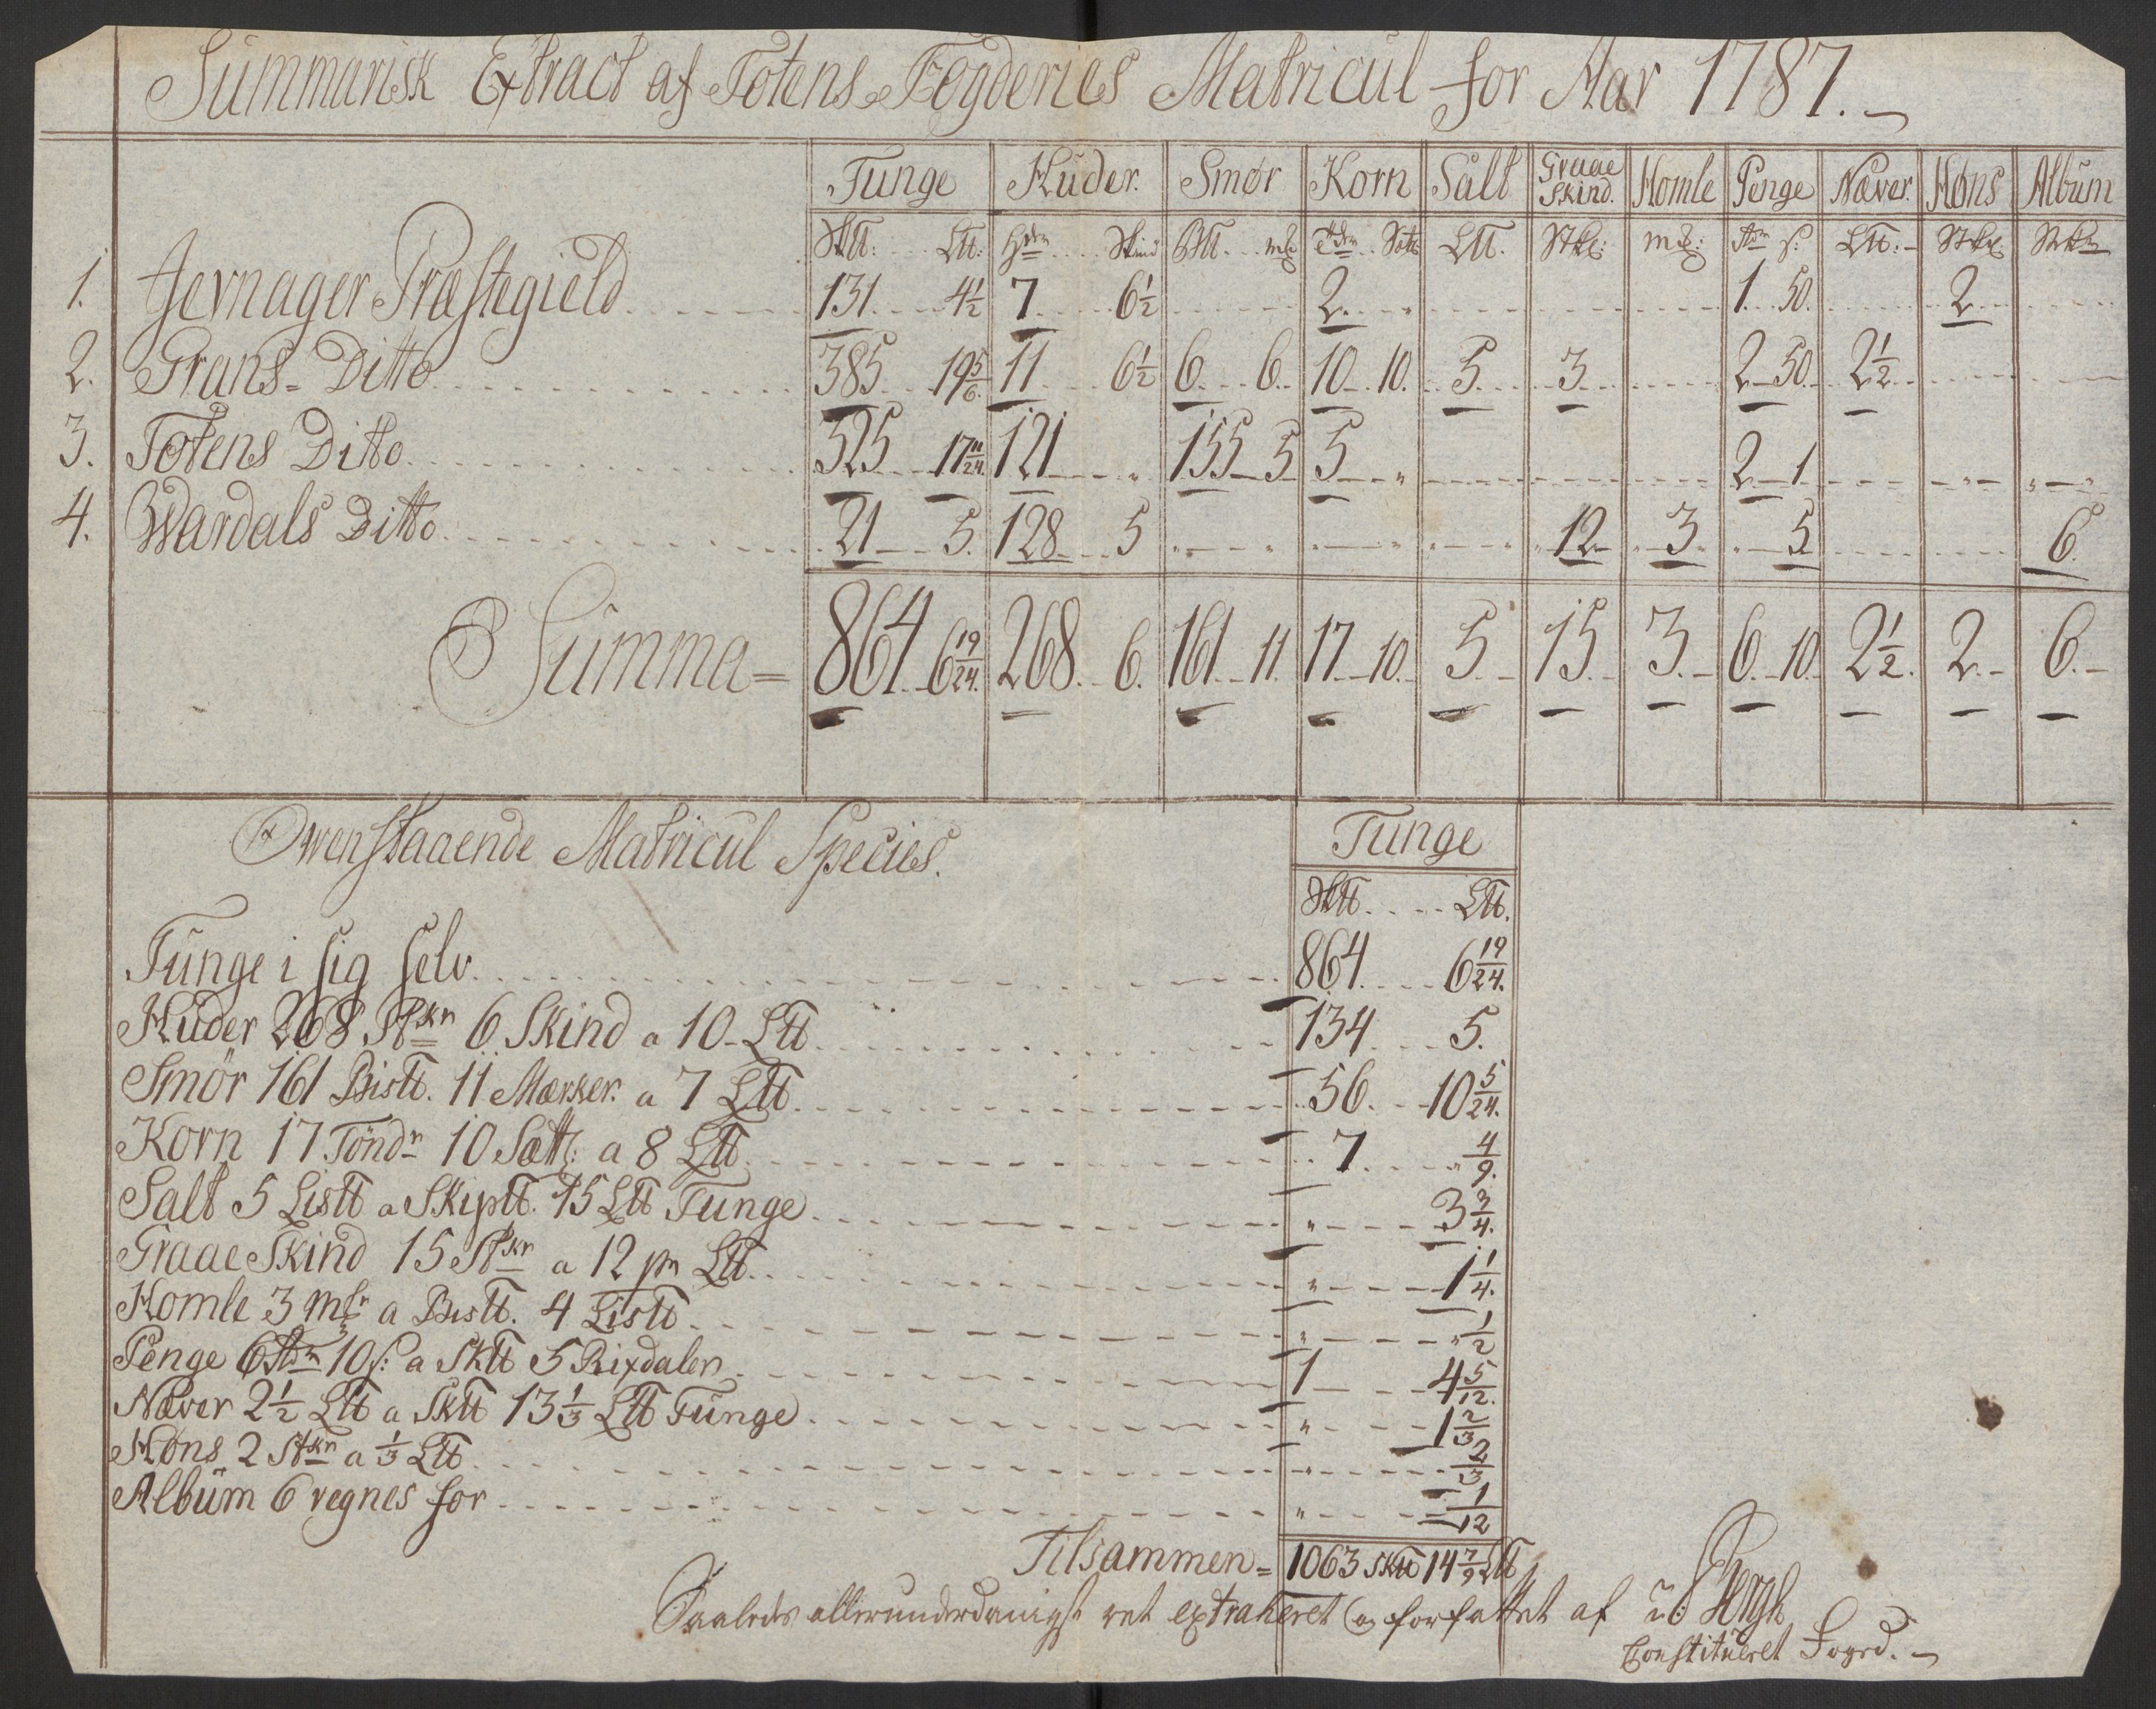 Summarisk Extract af Totens Fogderies Matricul for Aar 1787.
Tunge Huder. Smør Korn Salt Graae Skind. Homle Penge Næver. Høns Album
Sktt: Ltt: Skind Btt. mk Ltt. Stkr: mk: s: Ltt: Stkr Stkr
1. Jevnager Præstegield 131 4 1/2 7 6 1/2 2 1 50. 2
2. Grans Ditto 385 19 5/6 11 6 1/2 6 6 10 10. 5 3 2 50 2 1/2
3. Totens Ditto 325 17 11/24 121 " 155 5 5 " 2 1
4. Wardals Ditto 21 5. 128 5 12 3 5 6.
Summa = 864 6 19/24 268. 6. 161 11. 17 10. 5. 15. 3. 6 10. 2 1/2. 2. 6.
Owenstaaende Matricul Species.
Tunge
Sktt Ltt.
Tunge i sig selv 864 6 19/24.
Huder 268 Stkr 6 Skind a 10 Ltt 134 5.
Smør 161 Bistt. 11 Marker. a 7 Ltt 56. 10 5/24.
Korn 17 Töndr 10 Sett: a 8 Ltt 7 " 4/9.
Salt 5 Listt a Skiptt. 15 Ltt Tunge " 3 3/4.
Graae Skind 15 Stkr a 12 pr Ltt " 1 1/4.
Homle 3 mkr a Bistt. 4 Listt " " 1/2
Penge 6 10 s: a Sktt 5 Rixdaler 1 4 5/12.
Næver 2 1/2 Ltt a Sktt 13 1/3 Ltt Tunge " 1 2/3
Höns 2 Stkr a 1/3 Ltt " 2/3
Album 6 regnes for " 1/12
Tilsammen = 1063 Sktt 14 7/9 Ltt
Saaledes allerunderdanigst ret extraheret og forfattet af
Constitueret Foged.